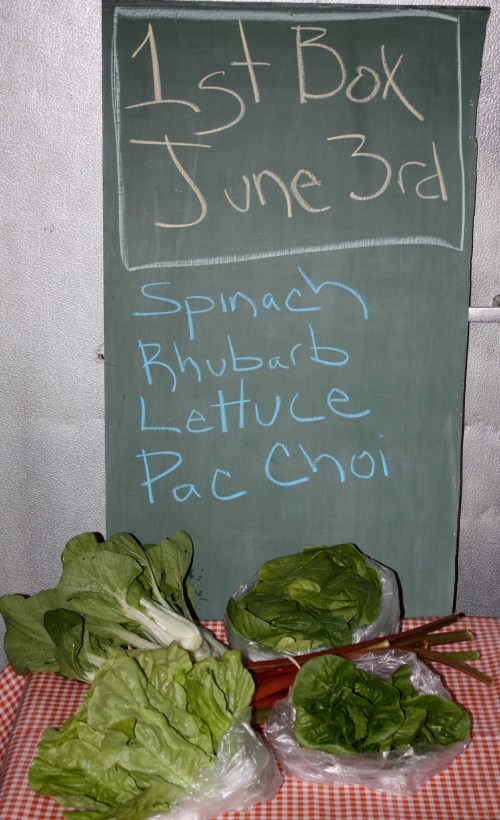 1st Box
June 3rd
Spinach
Rhubarb
Lettuce
Pac Choi